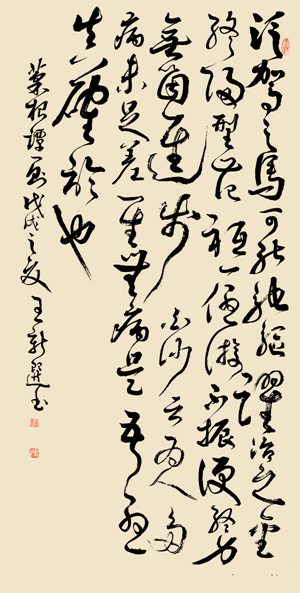 泛駕之馬可就馳驅躍冶之金
終歸型范祇一優游不振便終身
無箇進步白沙云為人多
病未足羞一生無病是吾憂
真確論也
菜根譚一則戊戌之夏王新選書